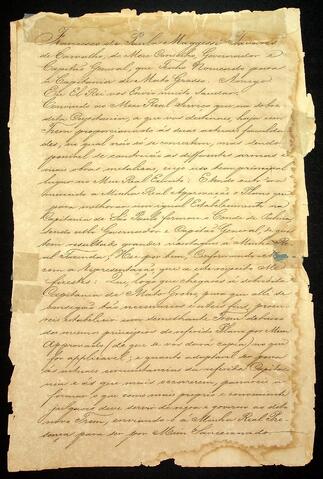 Francisco de Paula Maggessi Tavares
de Carvalho, do Meu Conselho, Governador e
Capitão General que Tenho Nomeado para
a Capitania de Mato Grosso. Amigo
Eu El Rei vos Envio muito Saudar.
Convindo ao Meu Real Serviço que na sobre
dita Capitania, a que vos destino, haja um
Trem proporcionado ás duas actuaes faculda
des, no qual não só se concertem, mas sendo
possivel se construão as differentes armas e
mais obras que são do principal
lugar no Meu Real Exercito; E tendo até
a Minha Real Approvação o Plano que
para melhorar um igual Estabelecimento na
Capitania de São Paulo formou o Conde de Palma,
sendo Governador e Capitão General, de que
tem resultado grandes vantagens a Minha Re
al Fazenda; Hei por bem, Conformando-me
com a Representação que a este respeito Me
fizestes: Que, logo que chegares á
Capitania de Mato Grosso
estabelecer um semelhante Trem debaixo
dos mesmos principios do referido Plano por Mim
Approvado (de que se vos dará copia) no que
for applicavel; e quanto
ás actuaes circumstancias da referida Capita
nia e ás que mais occorrerem,
formar o que como mais proprio e conveniente
julgardes deve servir de regra e governo ao dito
novo Trem, enviando-o á Minha Real Pre
sença para ser por Mim Sanccionado.